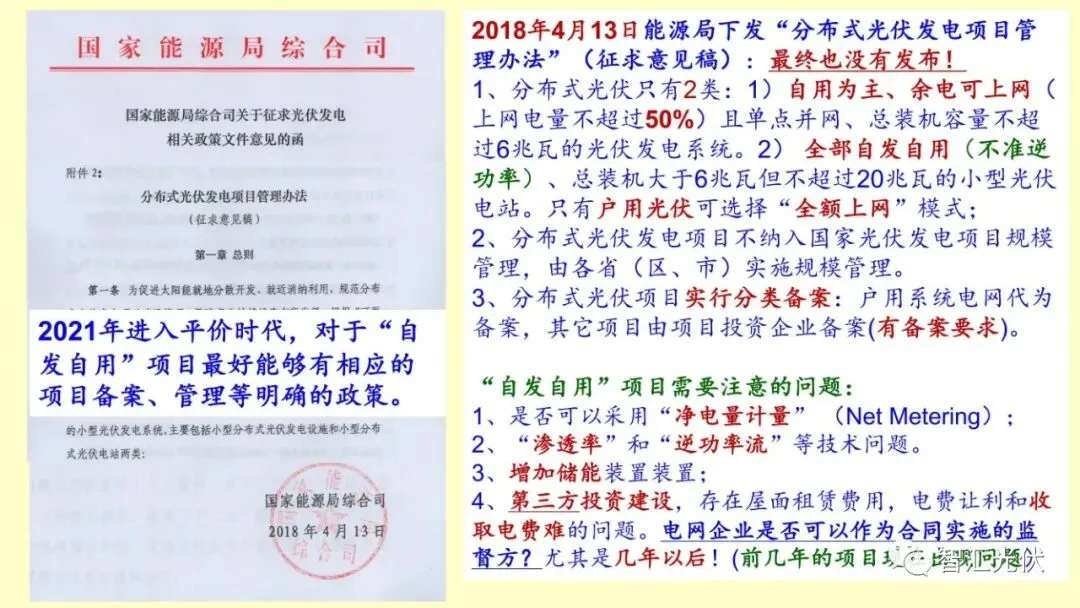 国家能源局综合司
国家能源局综合司关于征求光伏发电
相关政策文件意见的函
附件2：
分布式光伏发电项目管理办法
（征求意见稿）
第一章 总则
第一条 为促进太阳能就地分散开发、就近消纳利用，规范分布
2021年进入平价时代，对于“自
发自用”项目最好能够有相应的
项目备案、管理等明确的政策。
的小型光伏发电系统，主要包括小型分布式光伏发电设施和小型分布
式光伏电站两类：
国家能源局综合司
2018年4月13日
2018年4月13日能源局下发“分布式光伏发电项目管
理办法”（征求意见稿）：最终也没有发布！
1、分布式光伏只有2类：1）自用为主、余电可上网（
上网电量不超过50%）且单点并网、总装机容量不超
过6兆瓦的光伏发电系统。2） 全部自发自用（不准逆
功率）、总装机大于6兆瓦但不超过20兆瓦的小型光伏
电站。只有户用光伏可选择“全额上网”模式；
2、分布式光伏发电项目不纳入国家光伏发电项目规模
管理，由各省（区、市）实施规模管理。
3、分布式光伏项目实行分类备案：户用系统电网代为
备案，其它项目由项目投资企业备案(有备案要求)。
“自发自用”项目需要注意的问题：
1、是否可以采用“净电量计量”（Net Metering）；
2、“渗透率”和“逆功率流”等技术问题。
3、增加储能装置装置；
4、第三方投资建设，存在屋面租赁费用，电费让利和收
取电费难的问题。电网企业是否可以作为合同实施的监
督方？尤其是几年以后！(前几年的项目现 出现问题
智汇光伏